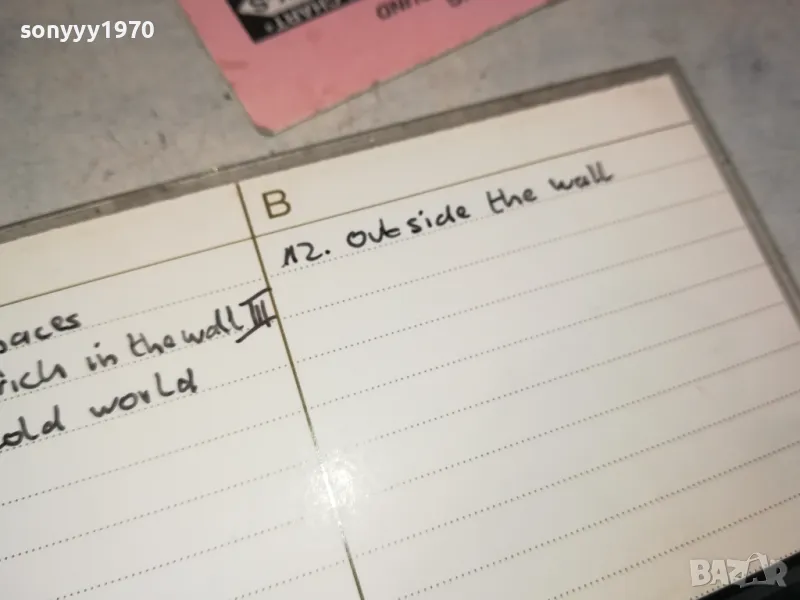 sonyyy1970
CHART
B
12. outside the wall
paces
rich in the wall III
old world
BAZAR